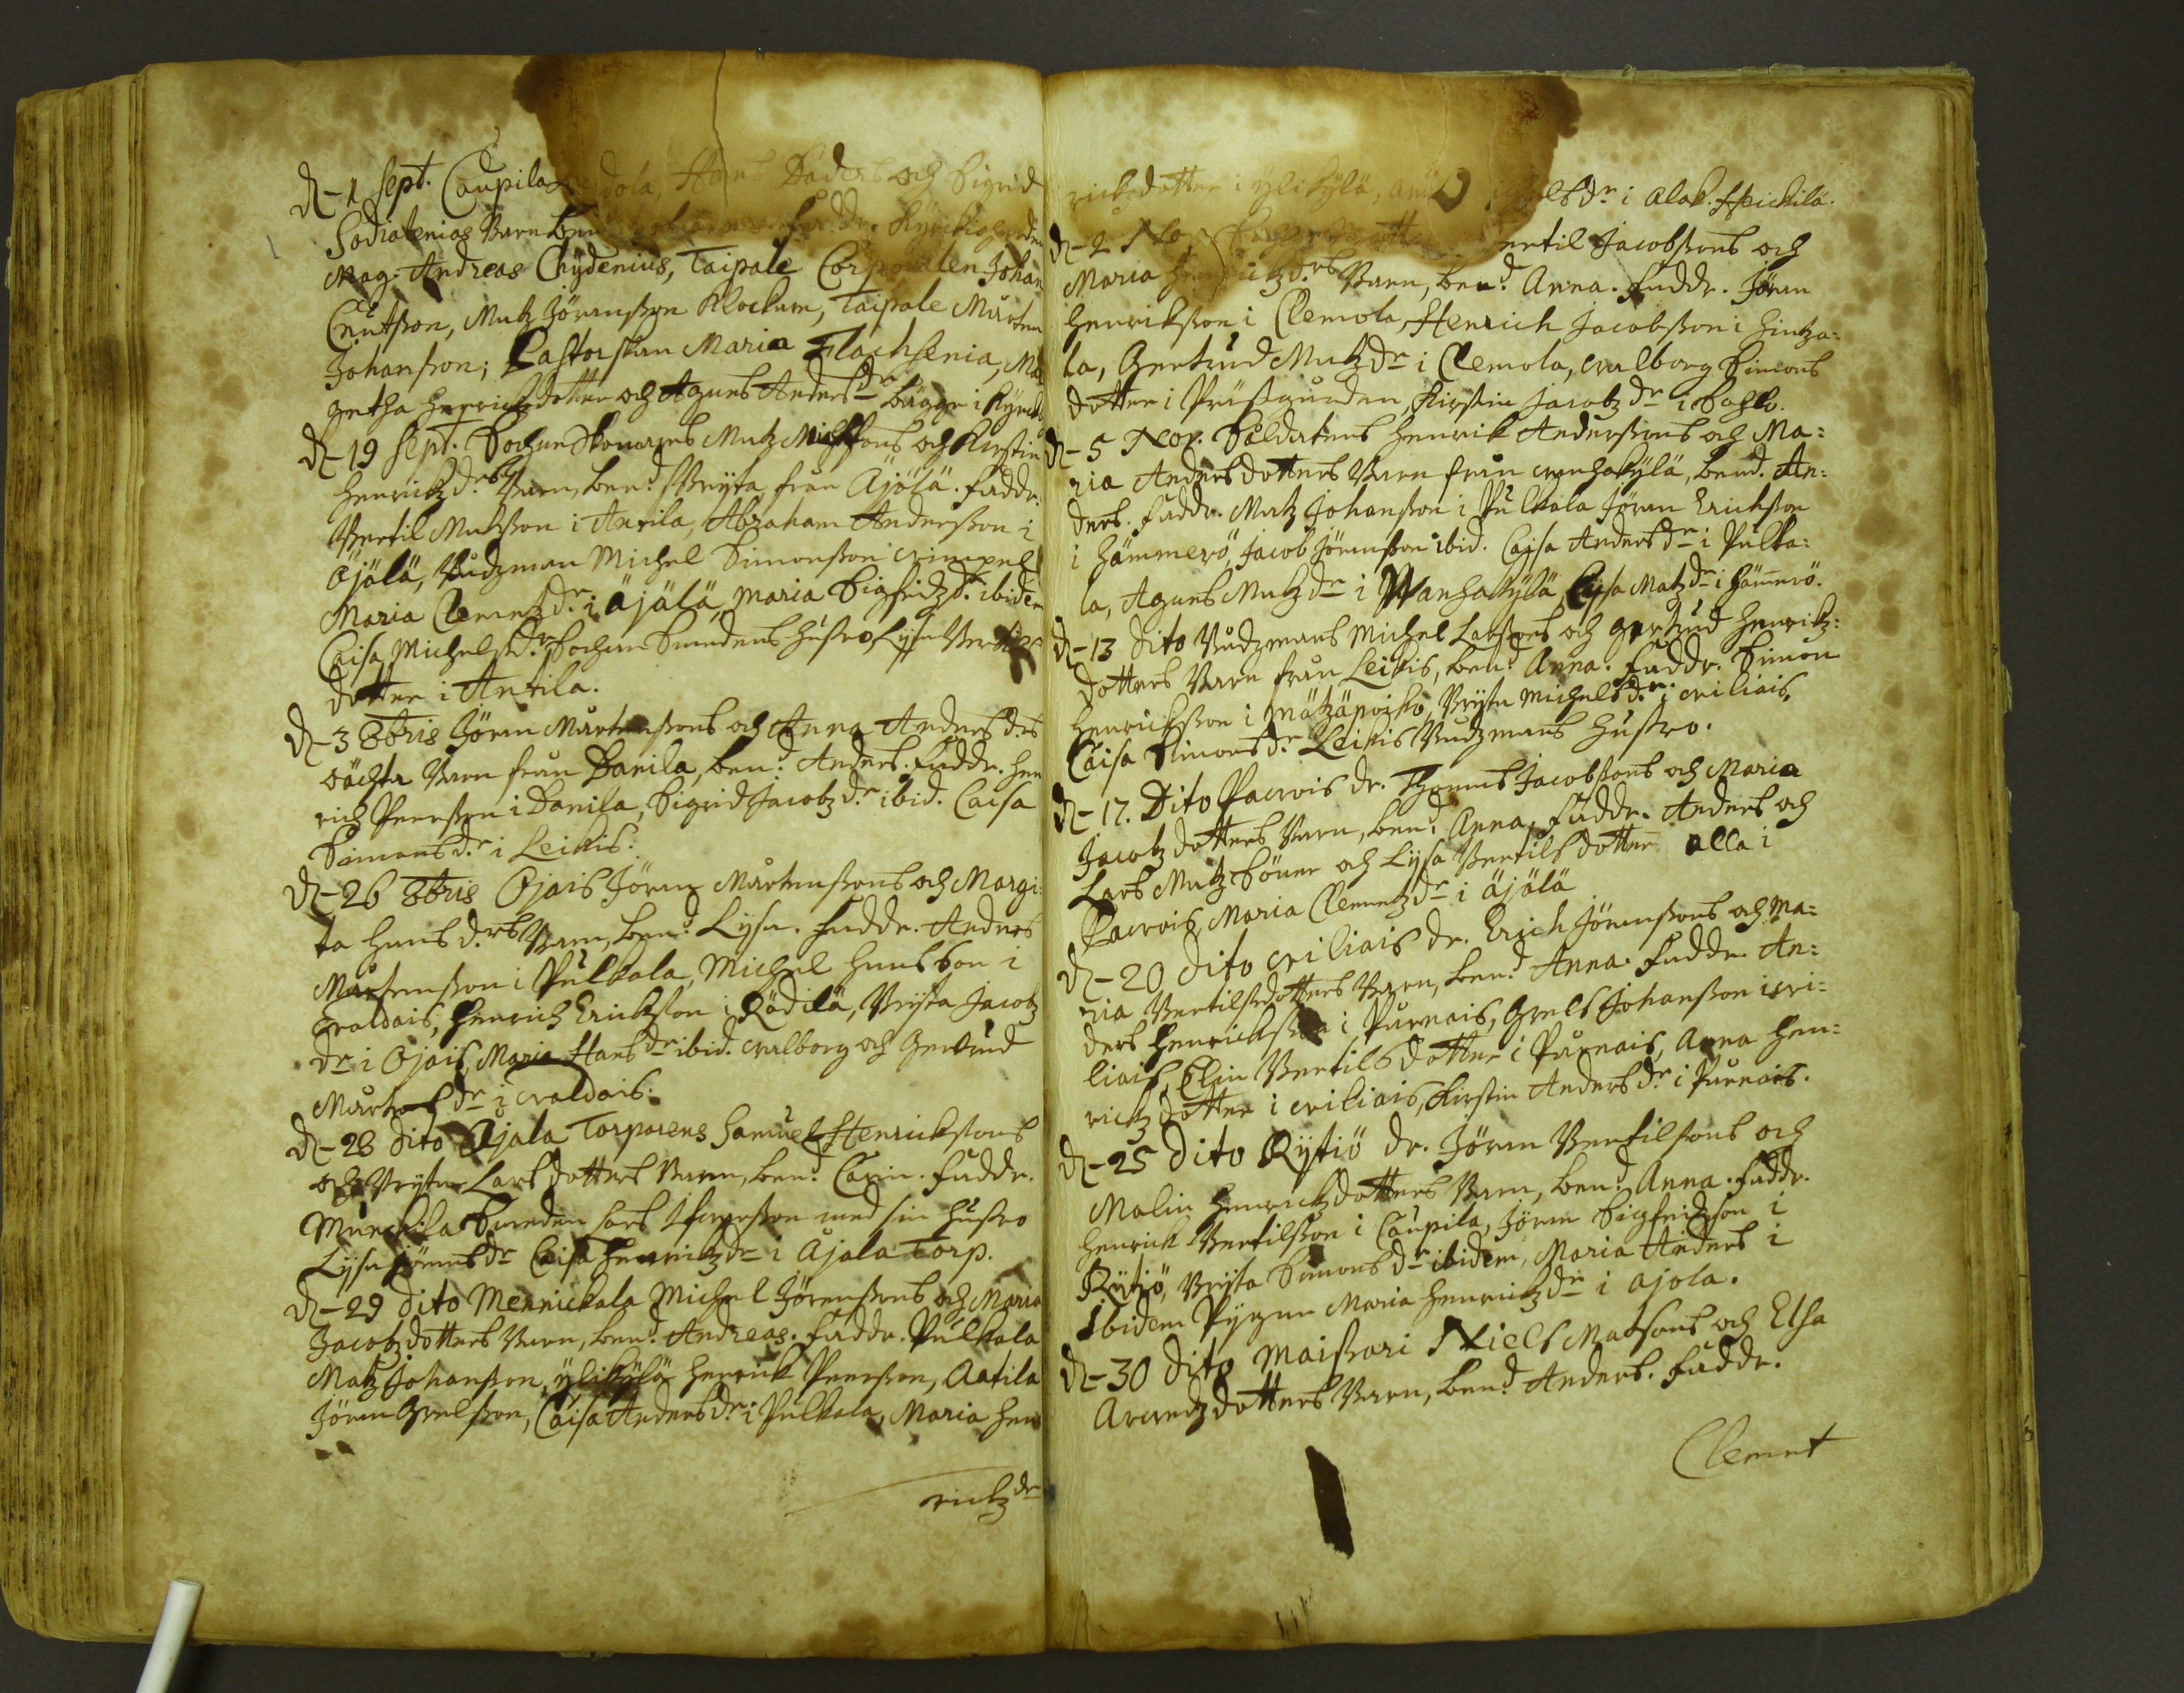 D-1 Sept. Caupila dola, Hans och Sigrid
Sodiatenias Barn
Mag. Andreas Chydenius, Taipale Corporalen Johan
Cnutsson, Matz Jöransson Klockare, Taipale Mårten
Johansson; Pastorskan Maria Flachsenia, Mar
getha Henrichzdotter och Agnes Andersdr bägge i Kyrck
D-19 Sept. Sochneskomarens Matz och Kirstin
Henrickzdrs Barn, ben.d Bryta från Äjälä. Faddr.
Bertil Matsson i Antila, Abraham Andersson i
Öjälä, Budzman Michel Simonsson i
Maria Clemetzdr i Äjälä, Maria Sigfridzdr ibidem
Caisa Michelsdr, Sochne Smedens hustro Lysa Bertils
dotter i Antila.
D-3 8bris Jören Mårtenssons och Anna Andersdrs
oächta Barn från Danila, ben.d Anders. Faddr. Hen
rich Peersson i Danila, Sigrid Jacobzdr ibid. Caisa
Simonsdr i Leikis.
D-26 8bris Ojais Jören Mårtenssons och Margi
ta Hansdrs Barn, ben.d Lysa. Faddr. Anders
Mårtensson i Pulkala, Michel Hansson i
Traldais, Henrich Ericksson i Rädilä, Bryta Jacobz
dr i Ojais, Maria Hansdr ibid. Walborg och Gertrud
Mårtensdr i Traldais.
D-28 dito Ojala Torparens Samuel Henrickssons
och Bryta Larsdotters Barn, ben.d Carin. Faddr.
Smeden Lars med sin hustro
Lysa Jöransdr Caisa Henrickzdr i Ajala Torp.
D-29 dito Mennickala Michel Jörenssons och Maria
Jacobzdotters Barn, ben.d Andreas. Faddr. Pulkala
Matz Johansson, ylikylä Henrick Peersson, Antila
Jören Grelsson, Caisa Andersdr i Pulkala, Maria Hen
rickzdr
rickzdotter i ylikylä, dr i Alak. Heickilä.
D-2 Nov. Bertil Jacobssons och
Maria Barn, ben.d Anna. Faddr. Jören
Henricksson i Clemola, Henrich Jacobsson i Hintza-
la, Gertrud Matzdr i Clemola, Walborg Simons
dotter i Prästgården, Kirstin Jacobzdr i
D-5 Nov. Soldatens Henrik Anderssons och Ma-
ria Andersdotters Barn från Wanhakylä, ben.d An-
ders. Faddr. Matz Johansson i Pulkala Jören Erichsson
i Hämmerö, Jacob Jöransson ibid. Caisa Andersdr i Pulka-
la, Agnes Matzdr i Wanhakylä Caisa Matzdr i Hämmerö.
D-13 dito Budzmans Michel Larssons och Gertrud Henrickz-
dotters Barn från Leikis, ben.d Anna. Faddr. Simon
Henricksson i Mätzänoisko, Bryta Michelsdr i Wiliais,
Caisa Simonsdr Leikis Budzmans hustro.
D-17. Dito Pacrois dr. Thomas Jacobssons och Maria
Jacobzdotters Barn, ben.d Anna. Faddr. Anders och
Lars Matz Söner och Lysa Bertilsdotter alla i
Pacrois, Maria Clemetzdr i Äjälä
D-20 dito Wiliais dr. Erich Jöranssons och Ma-
ria Bertilsdotters Barn, ben.d Anna. Faddr. An-
ders Henricksson i Purnais, Grels Johansson i Wi-
liais, Elin Bertilsdotter i Purnais, Anna Hen-
rickzdotter i Wiliais, Kirstin Andersdr i Purnais.
D-25 dito Rytiö dr. Jören Bertilssons och
Malin Henrickzdotters Barn, ben.d Anna. Faddr.
Henrick Bertilsson i Caupila, Jören Sigfridsson i
Rytiö, Bryta Simonsdr ibidem, Maria Anders i
ibidem Pygan Maria Henrickzdr i Ajola.
D-30 dito Maissari Niels Matssons och Elsa
Arwedzdotters Barn, ben.d Anders. Faddr.
Clemet